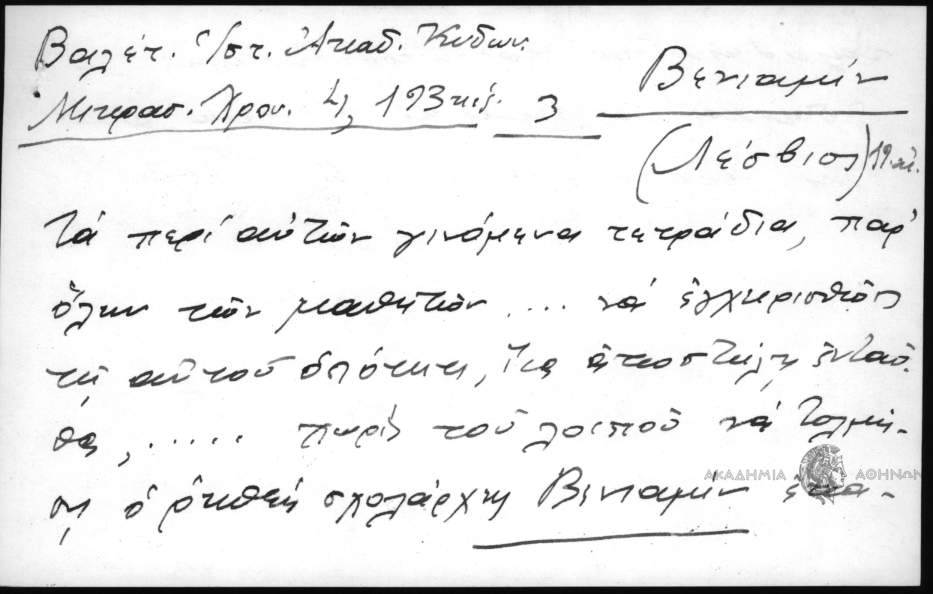 Βαλέτ. Ἱστ. Ἀκαδ. Κυδων.
Μικρασ. Χρον. 4, 193 κἑξ. 3 Βενιαμίν
(Λέσβιος) 19 αἰ.
Τά περί αὐτῶν γινόμενα τετράδια, παρ'
ὅλων τῶν μαθητῶν .... νά ἐγχειρισθῶσι
τῇ αὐτοῦ ὁσιότητι, ἵνα ἀποστείλῃ ἐνταῦ-
θα, ..... χωρίς τοῦ λοιποῦ νά τολμή-
σῃ ὁ ῥηθείς σχολάρχης Βενιαμίν
ΑΚΑΔΗΜΙΑ ΑΘΗΝΩΝ